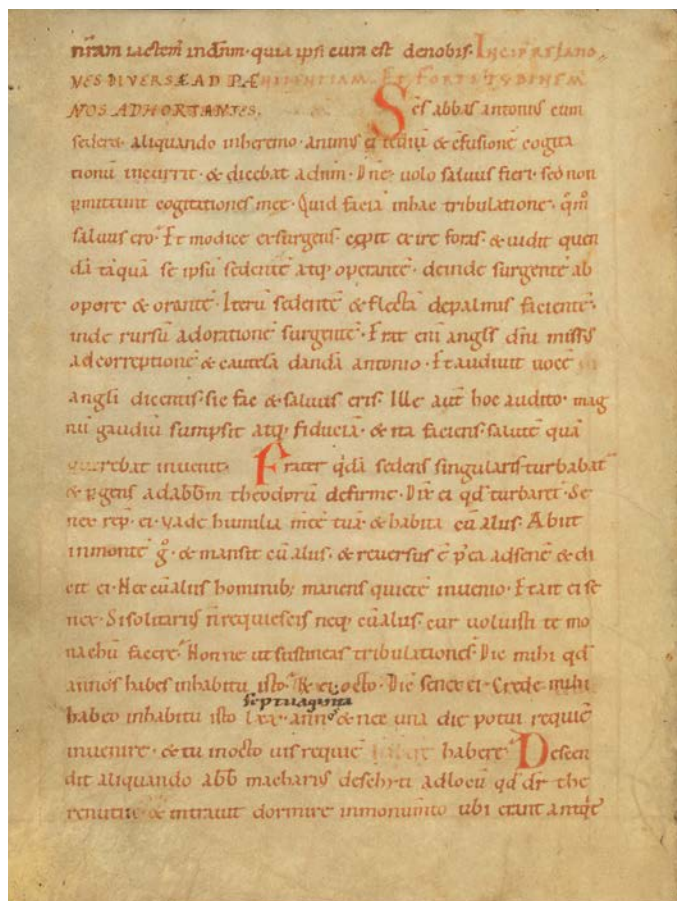 nr̄am iactem̄ in dn̄m · quia ipsi cura est de nobis · Incip̄ relatio
NES DIVERSÆ AD PÆNITENTIAM ET FORTITUDINEM
NOS ADHORTANTES. Scs̄ abbas antonius cum
sederet aliquando in heremo · animus ei tediū & cf̄usionē cogita
tionū incurrit · & dicebat ad dn̄m · Dn̄e uolo saluus fieri · sed non
ꝑmittunt cogitationes meę · Quid faciā in hac tribulatione · qm̄
saluus ero · Et modice exsurgens cepit exire foras · & uidit quen
dā taquā se ipsū sedentē atq; operantē · deinde surgentē ab
opore & orantē · Iterū sedentē & flectā de palmis facientē ·
inde rursū ad orationē surgentē · Erat eni angls dn̄i missꝰ
ad correptionē & cautelā dandā antonio · Et audiuit uocē
angli dicentis · sic fac & saluus eris · Ille aut̄ hoc audito · mag
nū gaudiū sumpsit atq; fiduciā · & ita faciens · salutē quā
querebat inuenit · Frater qdā sedens singularis turbabat᷑
& ꝑgens ad abbm̄ theodorū de firme · Dix̄ ei qd̄ turbaret᷑ · Se
nex resp̄ · ei · Vade humilia m̄tē tuā & habita cū alus · Abiit
in monte g̊ · & mansit cū alus · & reuersus ē p̄ea ad senē & di
cit ei · Nec cū alus hominib; manens quietē inuenio · Et ait ei se
nex · Si solitariꝰ n̄ requiescis neq; cū alus · cur uoluisti te mo
nachū facere · Nonne ut sustineas tribulationes · Dic mihi qd̄
annos habes in habitu isto · R̄ ei; octo · Dic̄ senex ei · Crede mihi
septuaginta
habeo in habitu isto lxx · annos & nec una die potui requiē
inuenire · & tu in octo uis requiē habere · Descen
dit aliquando abb̄ macharis de schyti ad locū qd̄ dr̄ the
renutū · & intrauit dormire in monumto ubi erant antiqꝰ